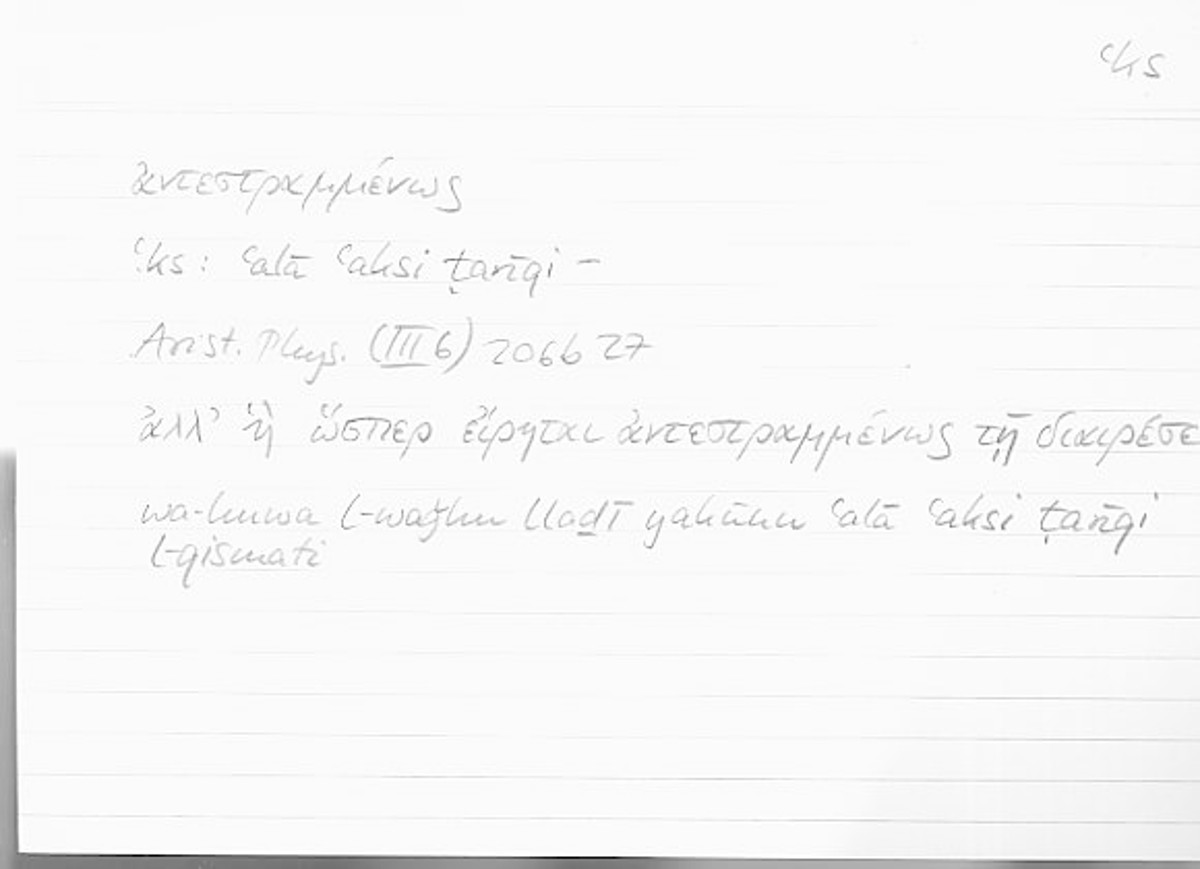 ʿks
ἀντεστραμμένως
ʿks: ʿalā ʿaksi ṭarīqi –
Arist. Phys. (III 6) 206b 27
ἀλλ’ ἢ ὥσπερ εἴρηται ἀντεστραμμένως τῇ διαιρέσε
wa-huwa l-waǧhu lladī yakūnu ʿalā ʿaksi ṭarīqi
l-qismati